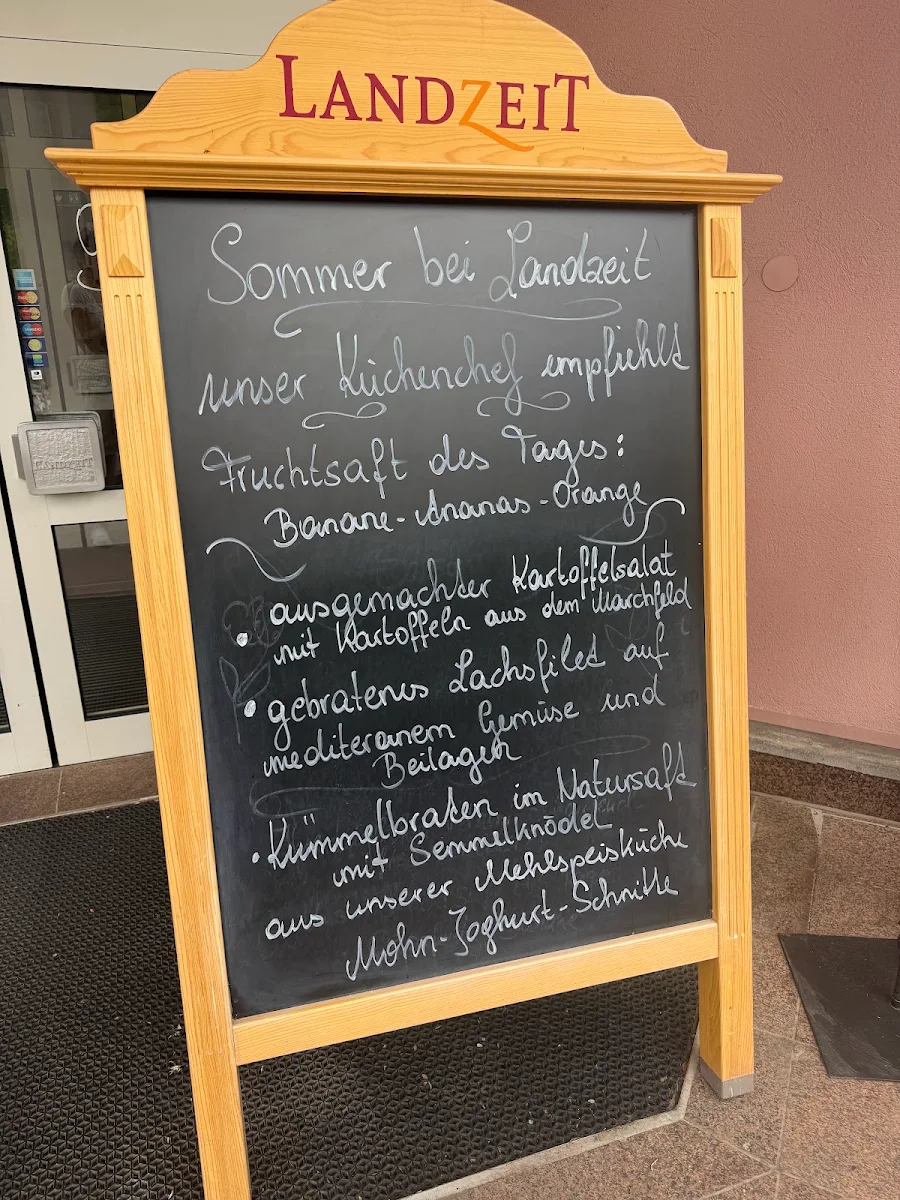 LANDZEIT
Sommer bei Landzeit
unser Küchenchef empfiehlt
Fruchtsaft des Tages:
Banane-Ananas-Orange
• ausgemachter Kartoffelsalat
mit Kartoffeln aus dem Marchfeld
• gebratenes Lachsfilet auf
mediteranem Gemüse und
Beilagen
• Kümmelbraten im Natursaft
mit Semmelknödel
aus unserer Mehlspeisküche
Mohn-Joghurt-Schnitte
LANDZEIT